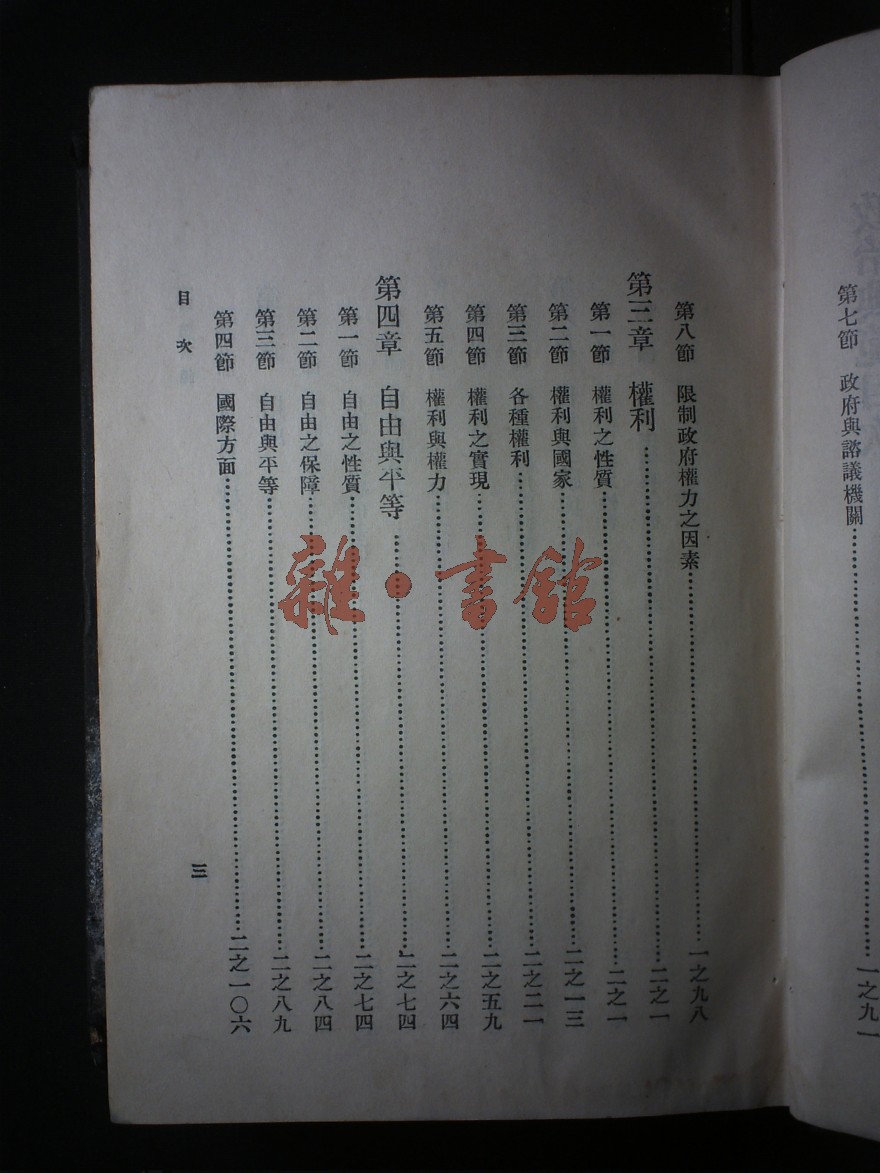 第七節　政府與諮議機關……一之九一
第八節　限制政府權力之因素……一之九八
第三章　權利……二之一
第一節　權利之性質……二之一
第二節　權利與國家……二之一三
第三節　各種權利……二之二一
第四節　權利之實現……二之五九
第五節　權利與權力……二之六四
第四章　自由與平等……二之七四
第一節　自由之性質……二之七四
第二節　自由之保障……二之八四
第三節　自由與平等……二之八九
第四節　國際方面……二之一〇六
目次
三
雜·書館